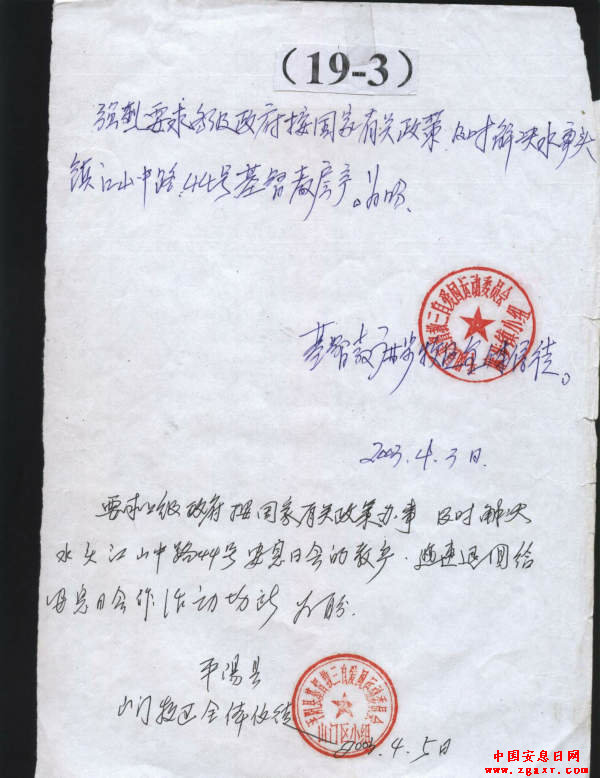 (19-3)
强烈要求各级政府按国家有关政策及时解决水头
镇江山中路44号基督教房产。为盼
基督教 牧区全体信徒。
2003.4.3日.
要求上级政府按国家有关政策办事 及时解决
水头江山中路44号安息日会的教产.随速退回给
安息日会作活动场所 为盼.
平阳县
山门牧区全体信徒
2003.4.5日
三自爱国运动委员会
小组
平阳县基督教三自爱国运动委员会
山门区小组
中国安息日网
www.zgaxr.com